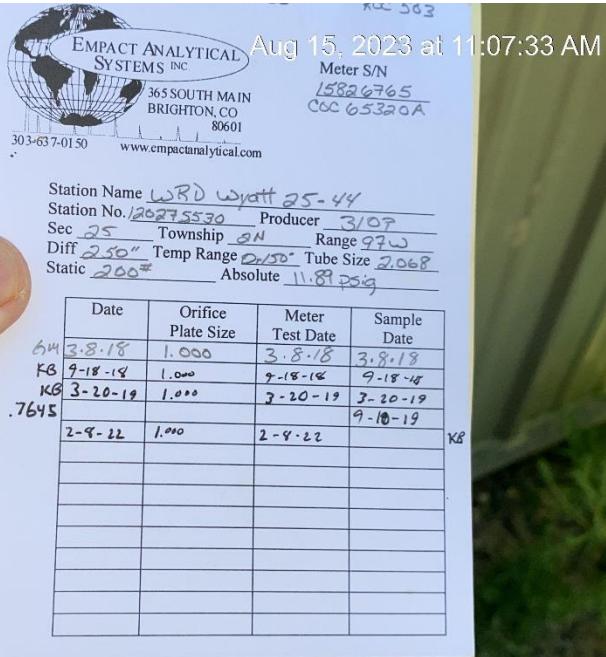 Aug 15, 2023 at 11:07:33 AM
EMPACT ANALYTICAL
SYSTEMS INC.
Meter S/N
15826765
COC 65320A
365 SOUTH MAIN
BRIGHTON, CO
80601
303-637-0150
www.empactanalytical.com
Station Name WRD Wyatt 25-44
Station No. 120275530 Producer 3107
Sec 25 Township 2N Range 97W
Diff 250" Temp Range 0-150° Tube Size 2.068
Static 200# Absolute 11.89 psig
Date Orifice Plate Size Meter Test Date Sample Date
3.8.18 1.000 3.8.18 3.8.18
KB 9-18-18 1.000 9-18-18 9-18-18
KB 3-20-19 1.000 3-20-19 3-20-19
.7645 9-10-19
2-8-22 1.000 2-8-22 KB